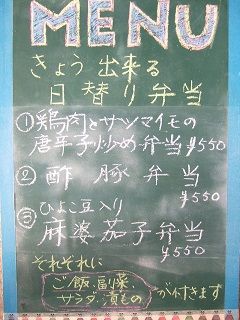 MENU
きょう出来る
日替り弁当
①鶏肉とサツマイモの
唐辛子炒め弁当 ¥550
②酢豚弁当
¥550
③ひよこ豆入り
麻婆茄子弁当
¥550
それぞれに
ご飯・副菜・
サラダ・漬もの
が付きます